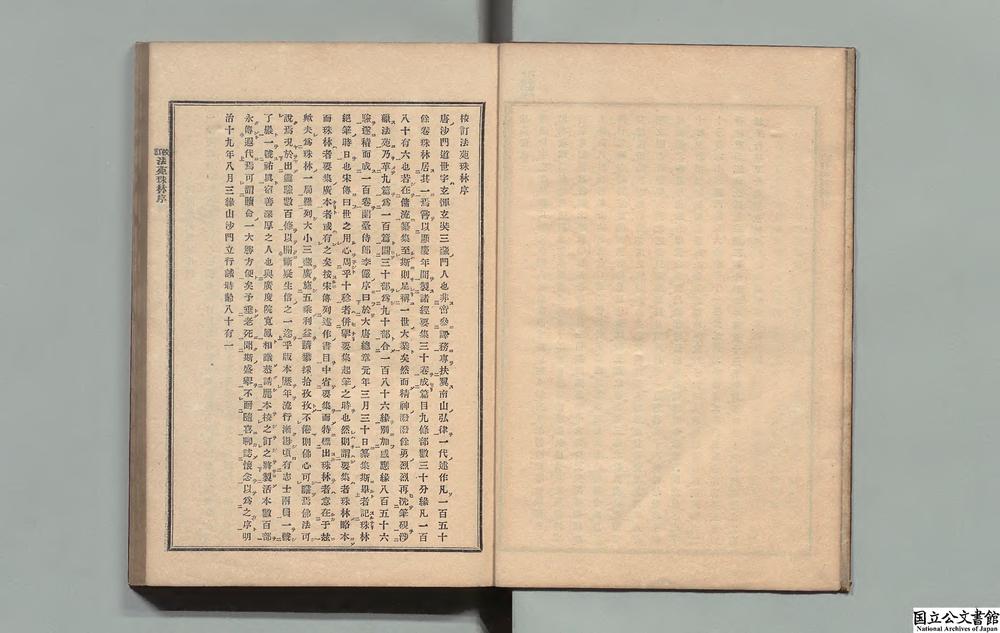 校訂法苑珠林序
唐沙門道世字玄惲玄奘三藏門人也非啻參譯務專扶翼南山弘律一代述作凡一百五十
餘卷珠林居其一焉嘗以顯慶年間製諸經要集三十卷成篇目九條部數三十分緣凡一百
八十有六也若在傭流纂集至斯則足稱一世大業矣然而精神潑潑餘勇烈烈再沈筆硯涉
獵法苑乃革九篇爲一百篇開三十部爲九十部合一百八十六緣別加感應緣八百五十六
驗遂積而成一百卷蘭臺侍郎李儼序曰於大唐總章元年三月三十日纂集斯畢者記珠林
絕筆時日也宋傳曰世之用心周乎十稔者併擧要集起筆之時也然則謂要集者珠林略本
而珠林者要集廣本者或有之矣按宋傳列述作書目中省要集而特標出珠林者意在于玆
歟夫爲珠林一局雖列大小三藏廣施五乘利益躋攀採拾孜孜不倦則佛心可識焉佛法可
說焉況於出靈驗數百條以開斷疑生信之一途乎版本歷年流行漸尠頃有志士兩員一號
了嚴一號祐眞宿善深厚之人也與廣度院寬鳳相議募請麗本校之訂之將製活本數百部
永傳遐代焉可謂護命一大勝方便矣予垂老死聞斯盛擧不耐隨喜聊誌懷念以爲之序明
治十九年八月三緣山沙門立行誡時齡八十有一
校訂法苑珠林序
国立公文書館
National Archives of Japan